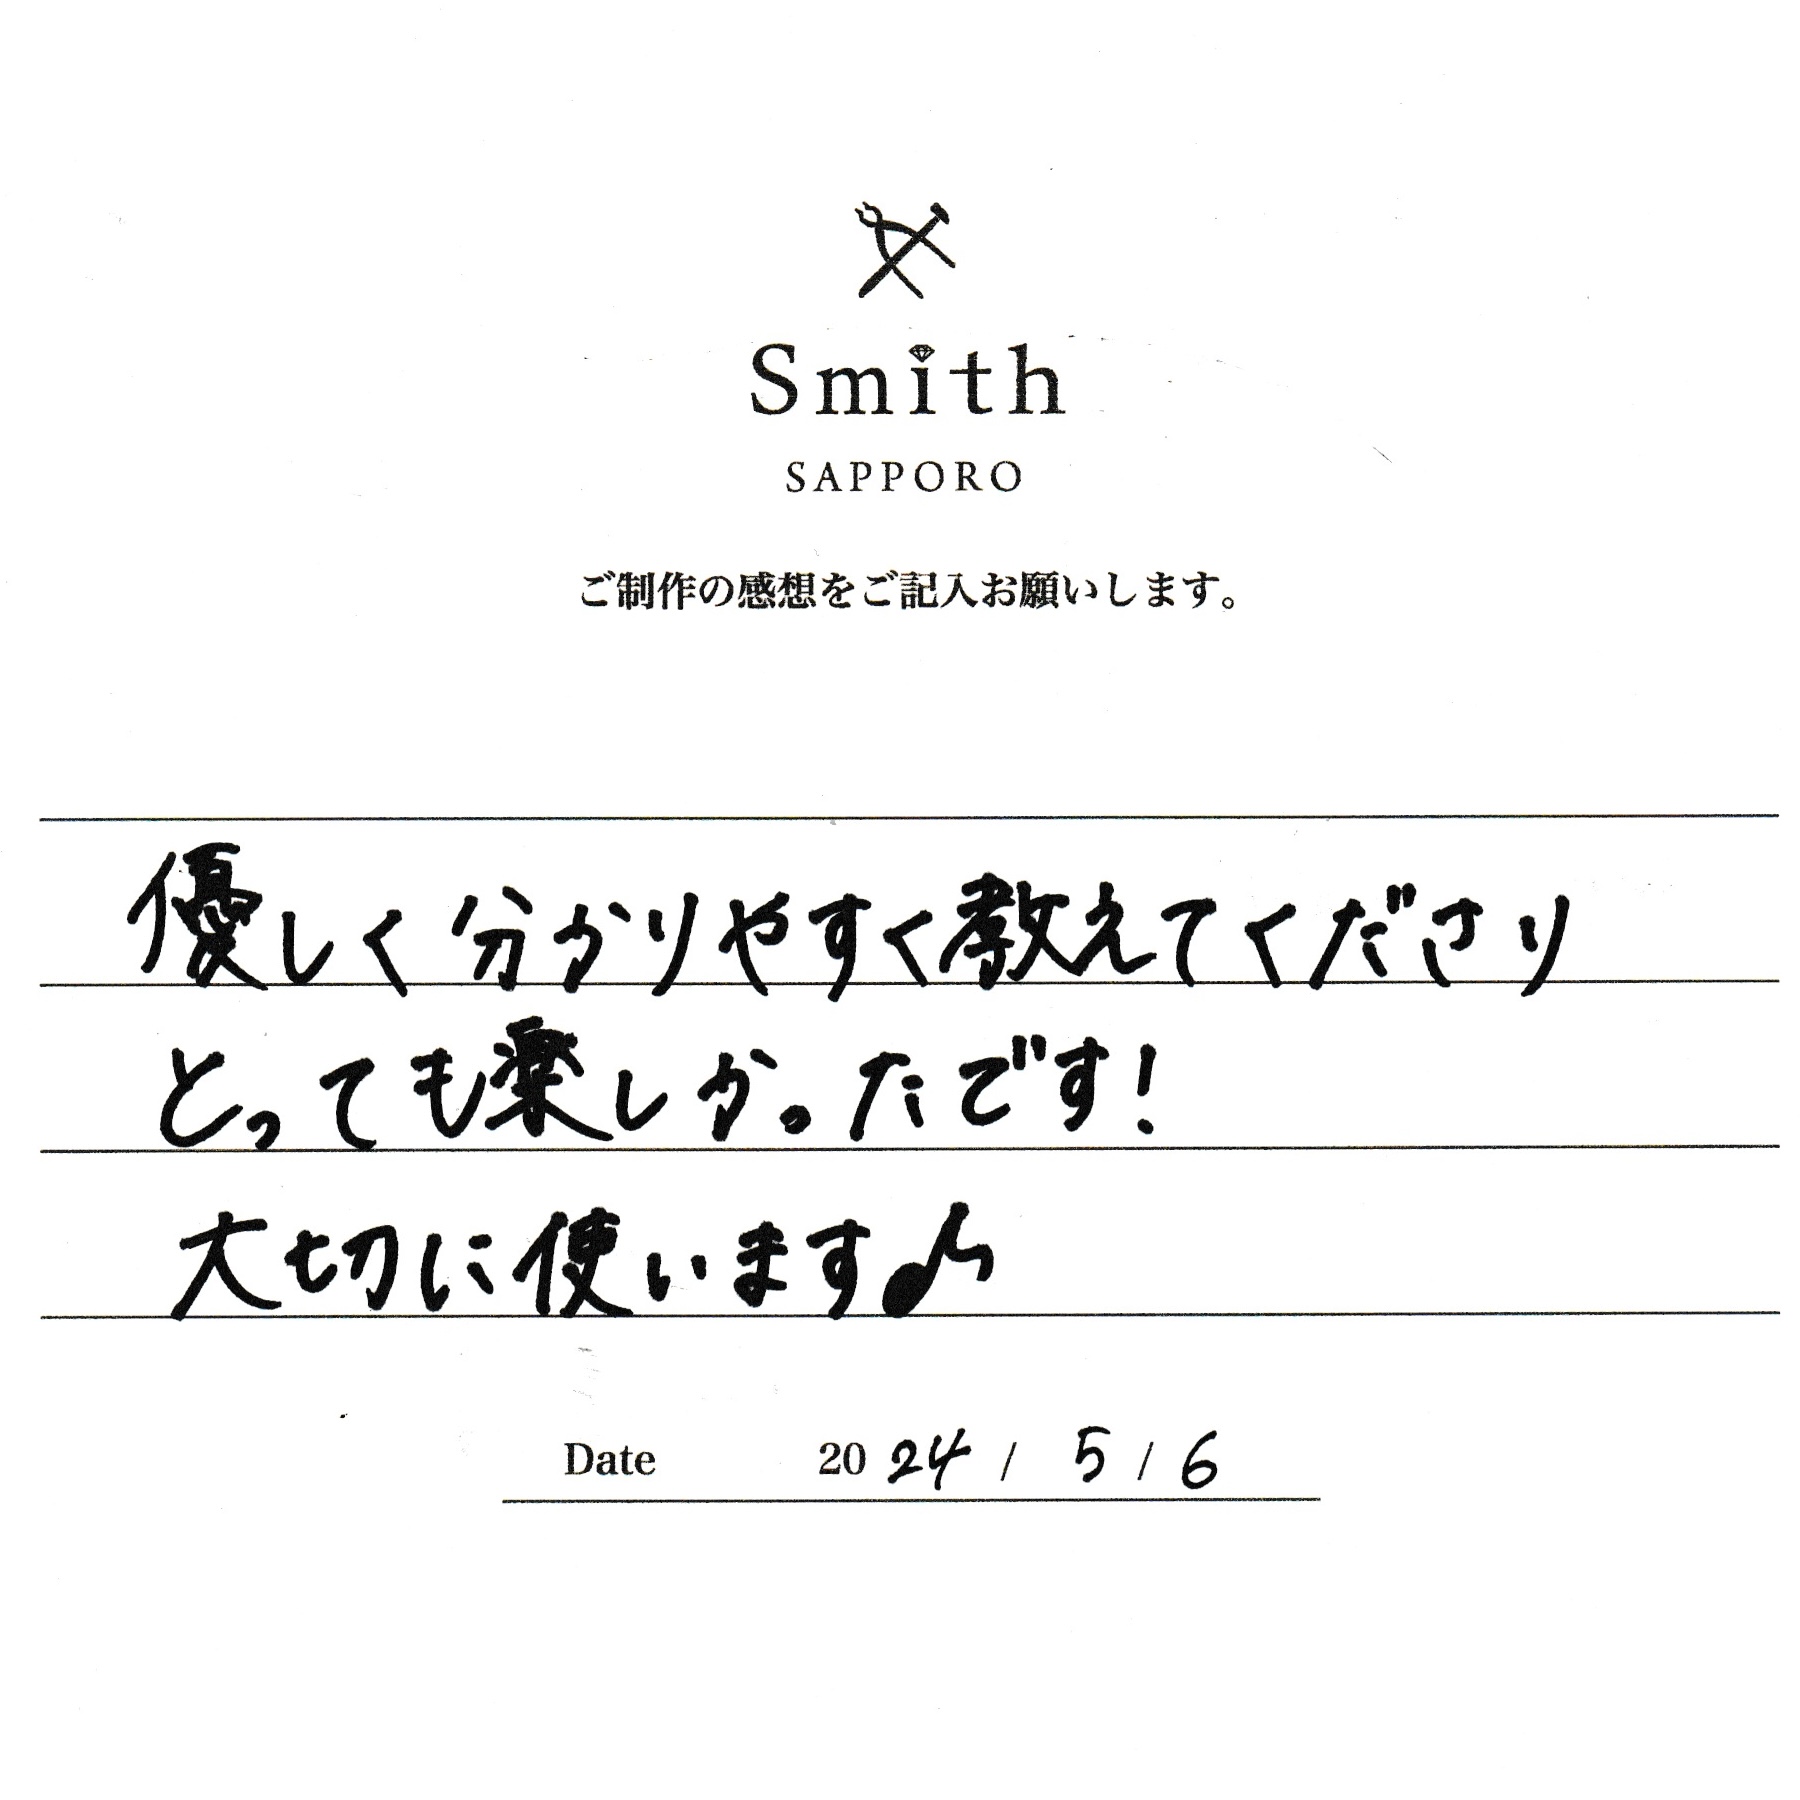 Smith
SAPPORO
ご制作の感想をご記入お願いします。
優しく分かりやすく教えてくださり
とっても楽しかったです!
大切に使います♪
Date 2024 / 5 / 6